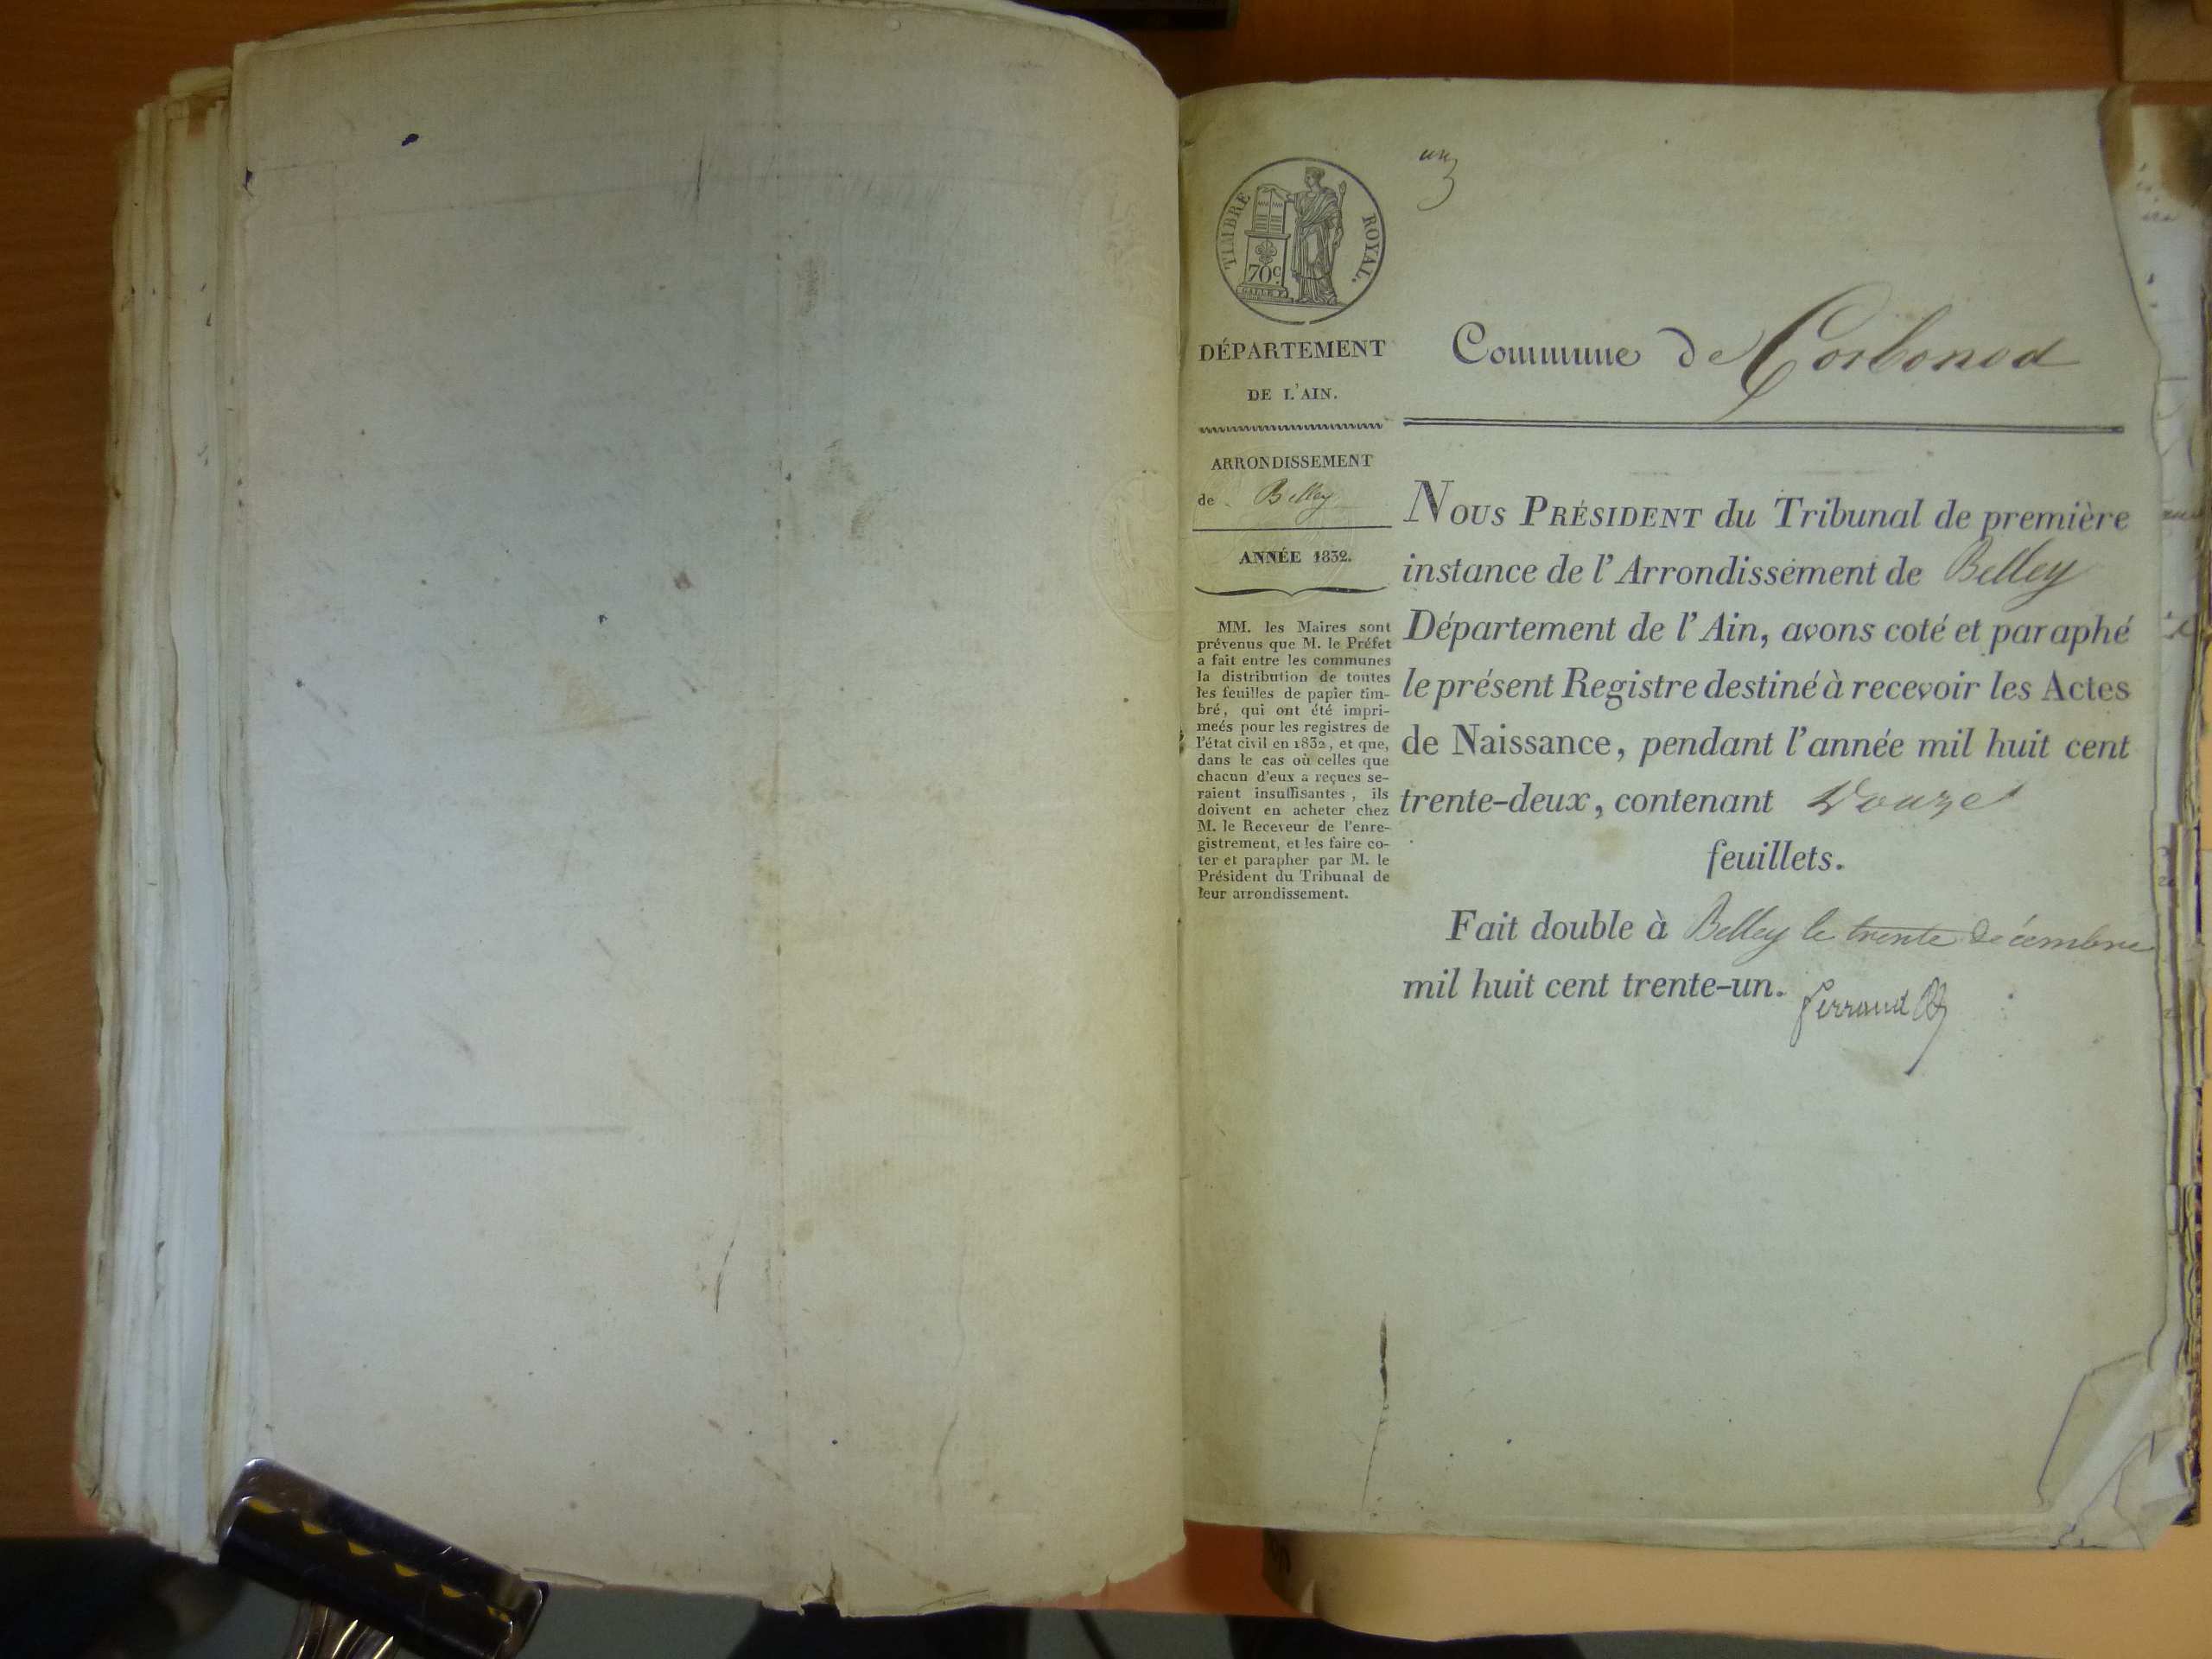 un
TIMBRE ROYAL.
70c
GALLE F.
DÉPARTEMENT
DE L'AIN.
ARRONDISSEMENT
de Belley
ANNÉE 1832.
MM. les Maires sont
prévenus que M. le Préfet
a fait entre les communes
la distribution de toutes
les feuilles de papier tim-
bré, qui ont été impri-
meés pour les registres de
l'état civil en 1832, et que,
dans le cas où celles que
chacun d'eux a reçues se-
raient insuffisantes, ils
doivent en acheter chez
M. le Receveur de l'enre-
gistrement, et les faire co-
ter et parapher par M. le
Président du Tribunal de
leur arrondissement.
Commune de Corbonod
NOUS PRÉSIDENT du Tribunal de première
instance de l'Arrondissement de Belley
Département de l'Ain, avons coté et paraphé
le présent Registre destiné à recevoir les Actes
de Naissance, pendant l'année mil huit cent
trente-deux, contenant Douze
feuillets.
Fait double à Belley le trente décembre
mil huit cent trente-un.
ferraud